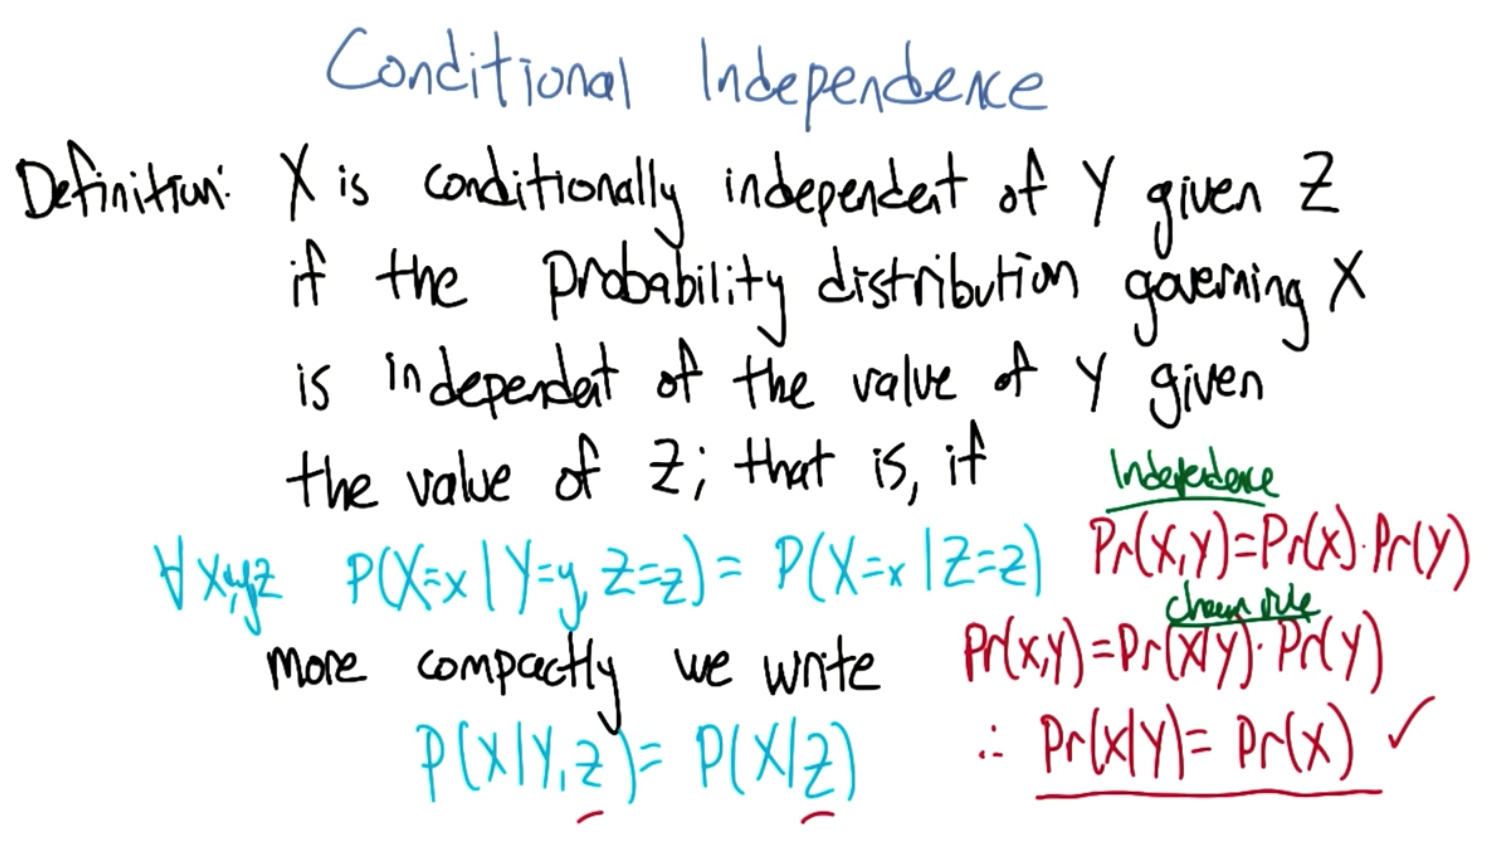 Conditional Independence
Definition: X is conditionally independent of Y given Z
if the probability distribution governing X
is independent of the value of Y given
the value of Z; that is, if
∀x,y,z P(X=x|Y=y, Z=z) = P(X=x|Z=z)
more compactly we write
P(X|Y,Z) = P(X|Z)
Independence
Pr(X,Y)=Pr(X)·Pr(Y)
chain rule
Pr(x,y)=Pr(X|Y)·Pr(Y)
∴ Pr(X|Y)= Pr(X) ✓